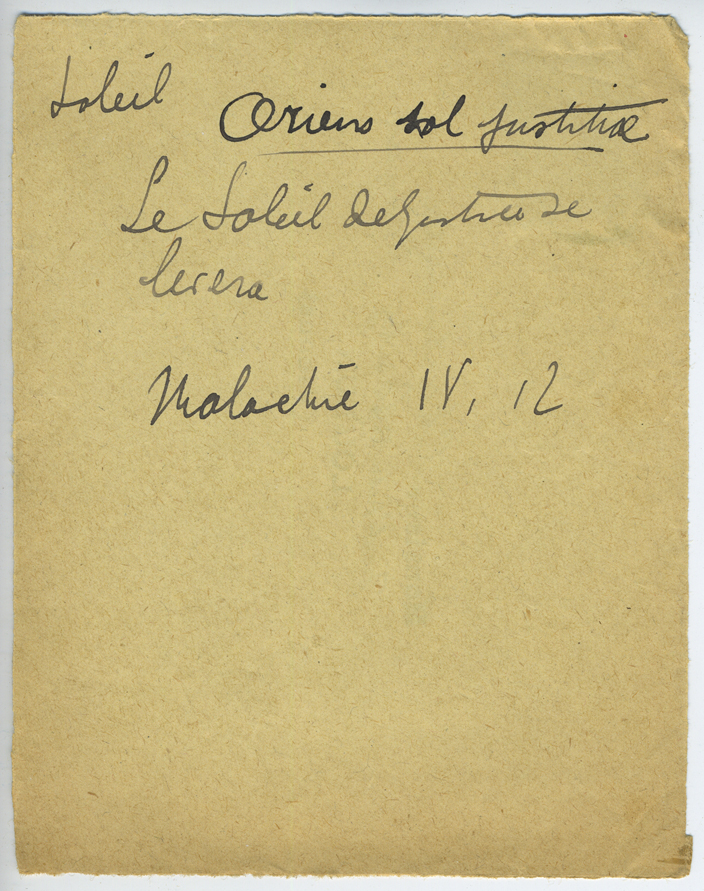 Soleil
Oriens sol justitiæ
Le Soleil de Justice se
levera
Malachie IV, 12